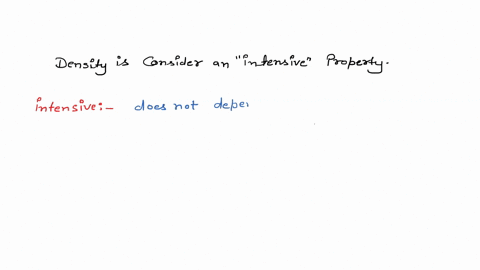 Density is Consider an "intensive" Property.
intensive:- does not depe